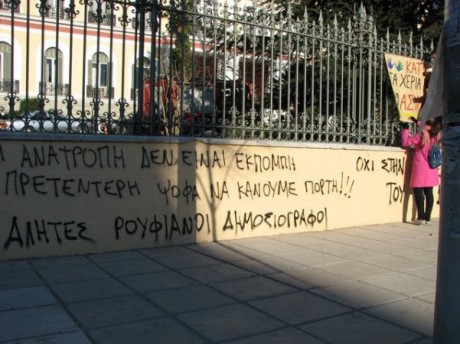 Η ΑΝΑΤΡΟΠΗ ΔΕΝ ΕΙΝΑΙ ΕΚΠΟΜΠΗ
ΠΡΕΤΕΝΤΕΡΗ ΨΟΦΑ ΝΑ ΚΑΝΟΥΜΕ ΠΟΡΤΗ!!!
ΑΛΗΤΕΣ ΡΟΥΦΙΑΝΟΙ ΔΗΜΟΣΙΟΓΡΑΦΟΙ
ΟΧΙ ΣΤΗΝ
ΤΟΥ
ΚΑΤ
ΤΑ ΧΕΡΙΑ